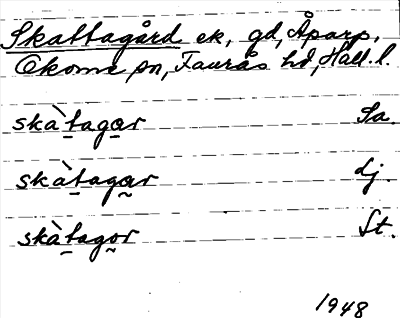 Skattagård ek, gd, Åparp,
Okome sn, Faurås hd, Hall. l.
skàtagar Sa.
skàtagar dj.
skàtagor St.
1948